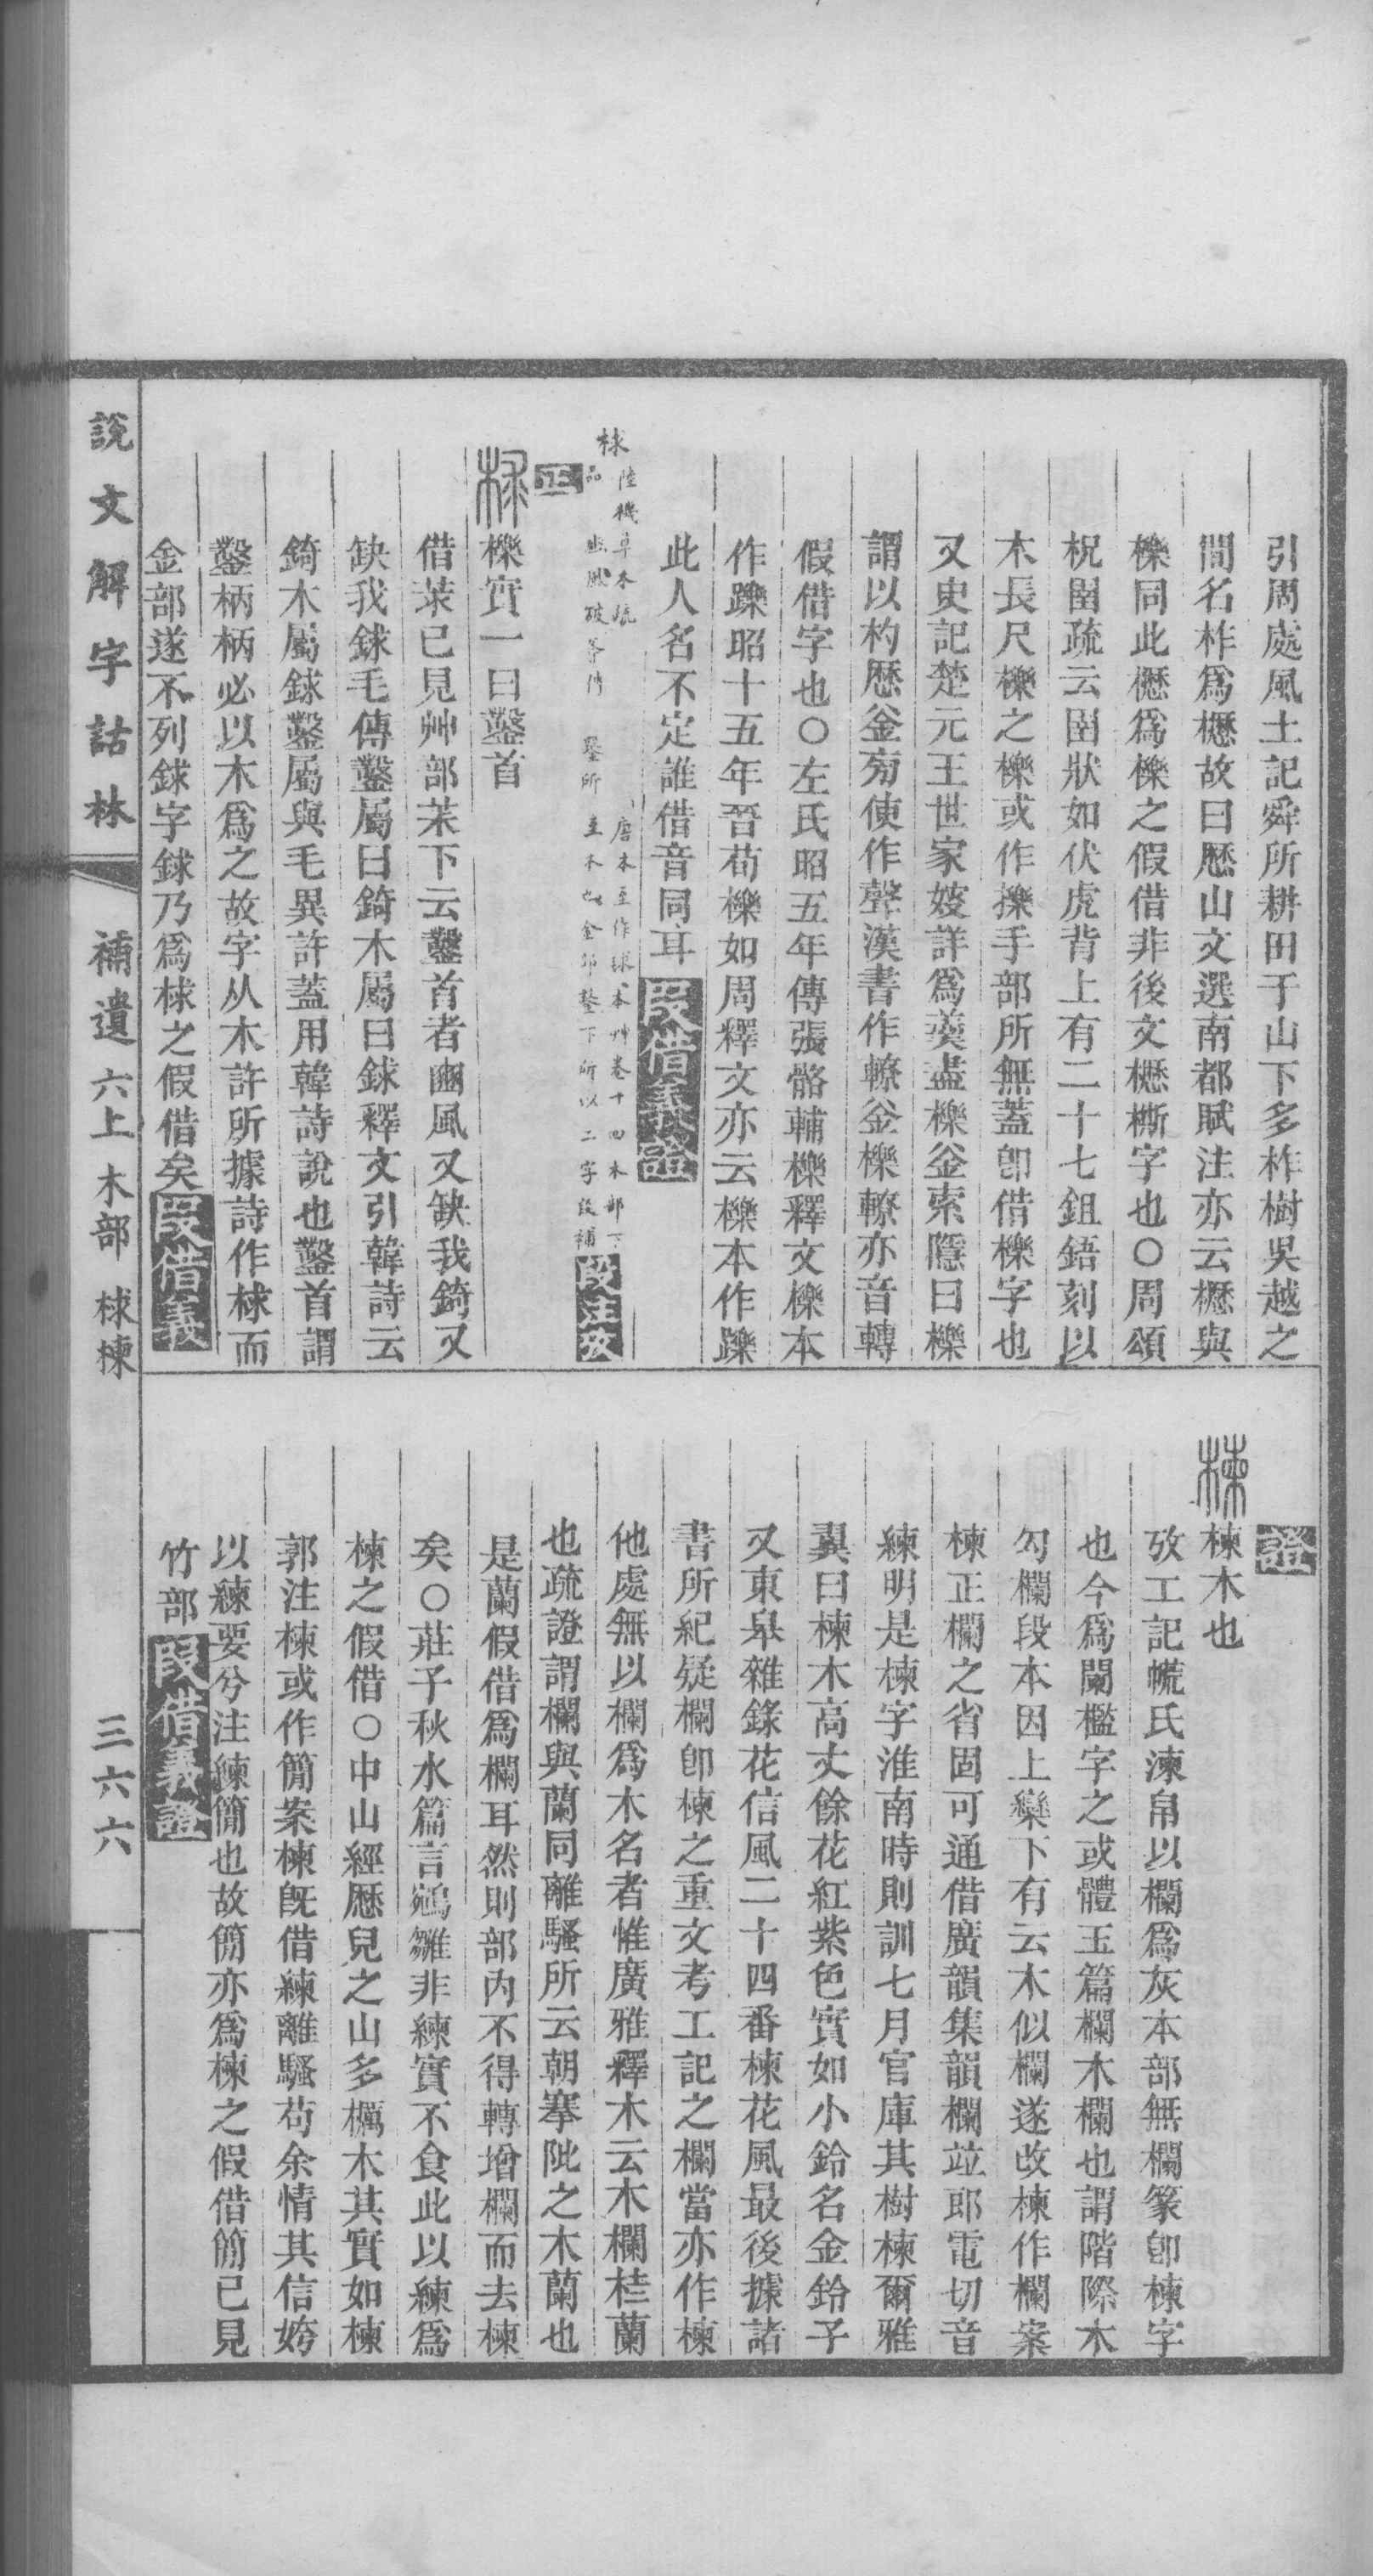 引周處風土記舜所耕田于山下多柞樹吳越之
間名柞爲櫪故曰歷山文選南都賦注亦云櫪與
櫟同此櫪爲櫟之假借非後文櫪㯕字也〇周頌
柷圉疏云圉狀如伏虎背上有二十七鉏鋙刻以
木長尺櫟之櫟或作擽手部所無蓋卽借櫟字也
又史記楚元王世家嫂詳爲羹盡櫟釜索隱曰櫟
謂以杓歷釜旁使作聲漢書作轑釜櫟轑亦音轉
假借字也〇左氏昭五年傳張骼輔櫟釋文櫟本
作躒昭十五年晉荀櫟如周釋文亦云櫟本作躒
此人名不定誰借音同耳 段借義證
梂 陸機草木疏 唐本至作梂 本艸卷十四木部下
品 豳風破斧傳 鑿所 至木也 金部鏨下 所以二字段補 段注攷
正
櫟實一曰鑿首
借莍已見艸部茮下云鑿首者豳風又缺我錡又
缺我銶毛傳鑿屬曰錡木屬曰銶釋文引韓詩云
錡木屬銶鑿屬與毛異許蓋用韓詩說也鑿首謂
鑿柄柄必以木爲之故字从木許所據詩作梂而
金部遂不列銶字銶乃爲梂之假借矣 段借義
證
楝木也
攷工記㡛氏湅帛以欄爲灰本部無欄篆卽楝字
也今爲闌檻字之或體玉篇欄木欄也謂階際木
勾欄段本因上欒下有云木似欄遂改楝作欄案
楝正欄之省固可通借廣韻集韻欄竝郎電切音
練明是楝字淮南時則訓七月官庫其樹楝爾雅
翼曰楝木高丈餘花紅紫色實如小鈴名金鈴子
又東皋雜錄花信風二十四番楝花風最後據諸
書所紀疑欄卽楝之重文考工記之欄當亦作楝
他處無以欄爲木名者惟廣雅釋木云木欄桂蘭
也疏證謂欄與蘭同離騷所云朝搴阰之木蘭也
是蘭假借爲欄耳然則部內不得轉增欄而去楝
矣〇莊子秋水篇言鵷雛非練實不食此以練爲
楝之假借〇中山經歷兒之山多櫔木其實如楝
郭注楝或作簡案楝旣借練離騷苟余情其信姱
以練要兮注練簡也故簡亦爲楝之假借簡已見
竹部 段借義證
說文解字詁林 補遺 六上 木部 梂楝 三六六